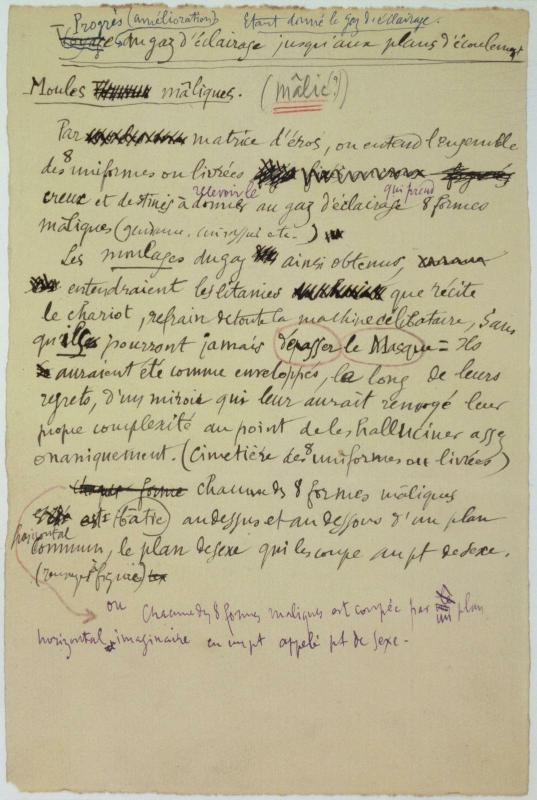 Progrès (amélioration) Etant donné le gaz d'éclairage.
du gaz d'éclairage jusqu'aux plans d'écoulement
Moules mâliques. (mâlic?)
Par matrice d'éros, on entend l'ensemble
des 8 uniformes ou livrées
creux et destinés à donner recevoir le au gaz d'éclairage qui prend 8 formes
mâliques (gendarme, cuirassier etc.)
Les moulages du gaz ainsi obtenus,
entendraient les litanies que récite
le chariot, refrain de toute la machine célibataire, Sans
qu'ils pourront jamais dépasser le Masque = Ils
auraient été comme enveloppés, le long de leurs
regrets, d'un miroir qui leur aurait renvoyé leur
propre complexité au point de les halluciner assez
onaniquement. (Cimetière des 8 uniformes ou livrées)
forme chacune des 8 formes mâliques
est bâtie au dessus et au dessous d'un plan
horizontal
commun, le plan de sexe qui les coupe au pt de sexe.
ou Chacune des 8 formes maliques est coupée par un plan
horizontal imaginaire en un pt appelé pt de sexe.